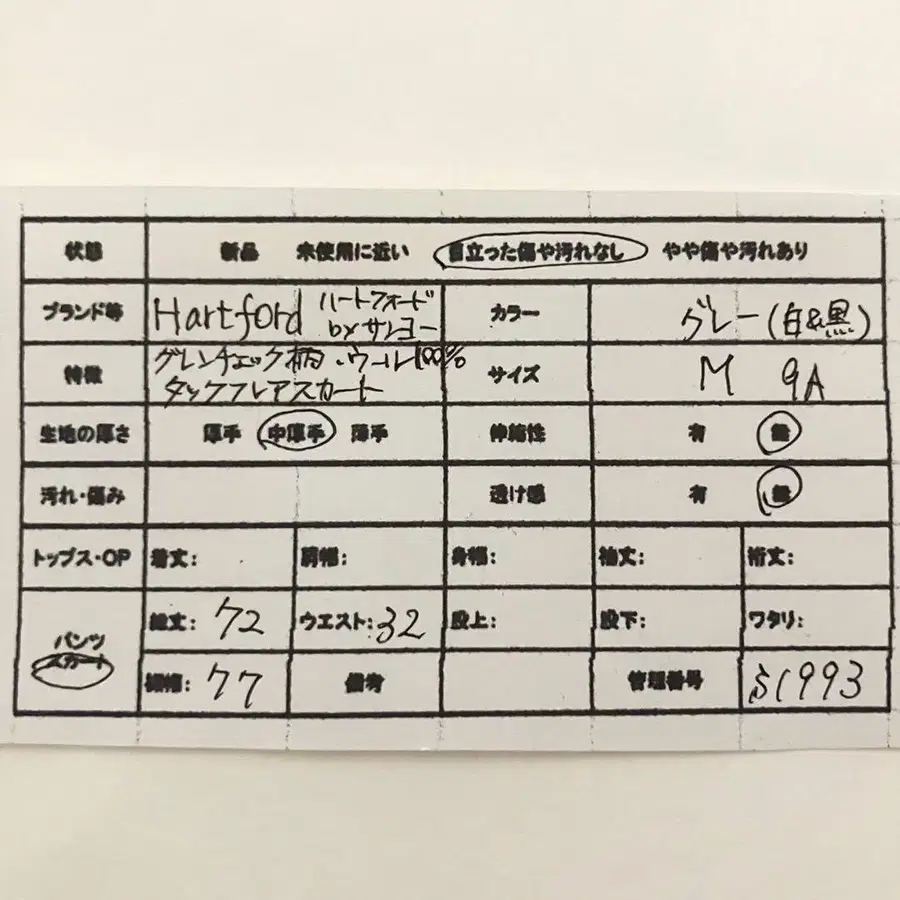 状態 新品 未使用に近い 目立った傷や汚れなし やや傷や汚れあり
ブランド等 Hartford ハートフォード by サンヨー カラー グレー(白&黒)
特徴 グレンチェック柄・ウール100% タックフレアスカート サイズ M 9A
生地の厚さ 厚手 中厚手 薄手 伸縮性 有 無
汚れ・傷み 透け感 有 無
トップス・OP 着丈: 肩幅: 身幅: 袖丈: 裄丈:
パンツ スカート 総丈: 72 ウエスト: 32 股上: 股下: ワタリ:
裾幅: 77 備考 管理番号 S1993